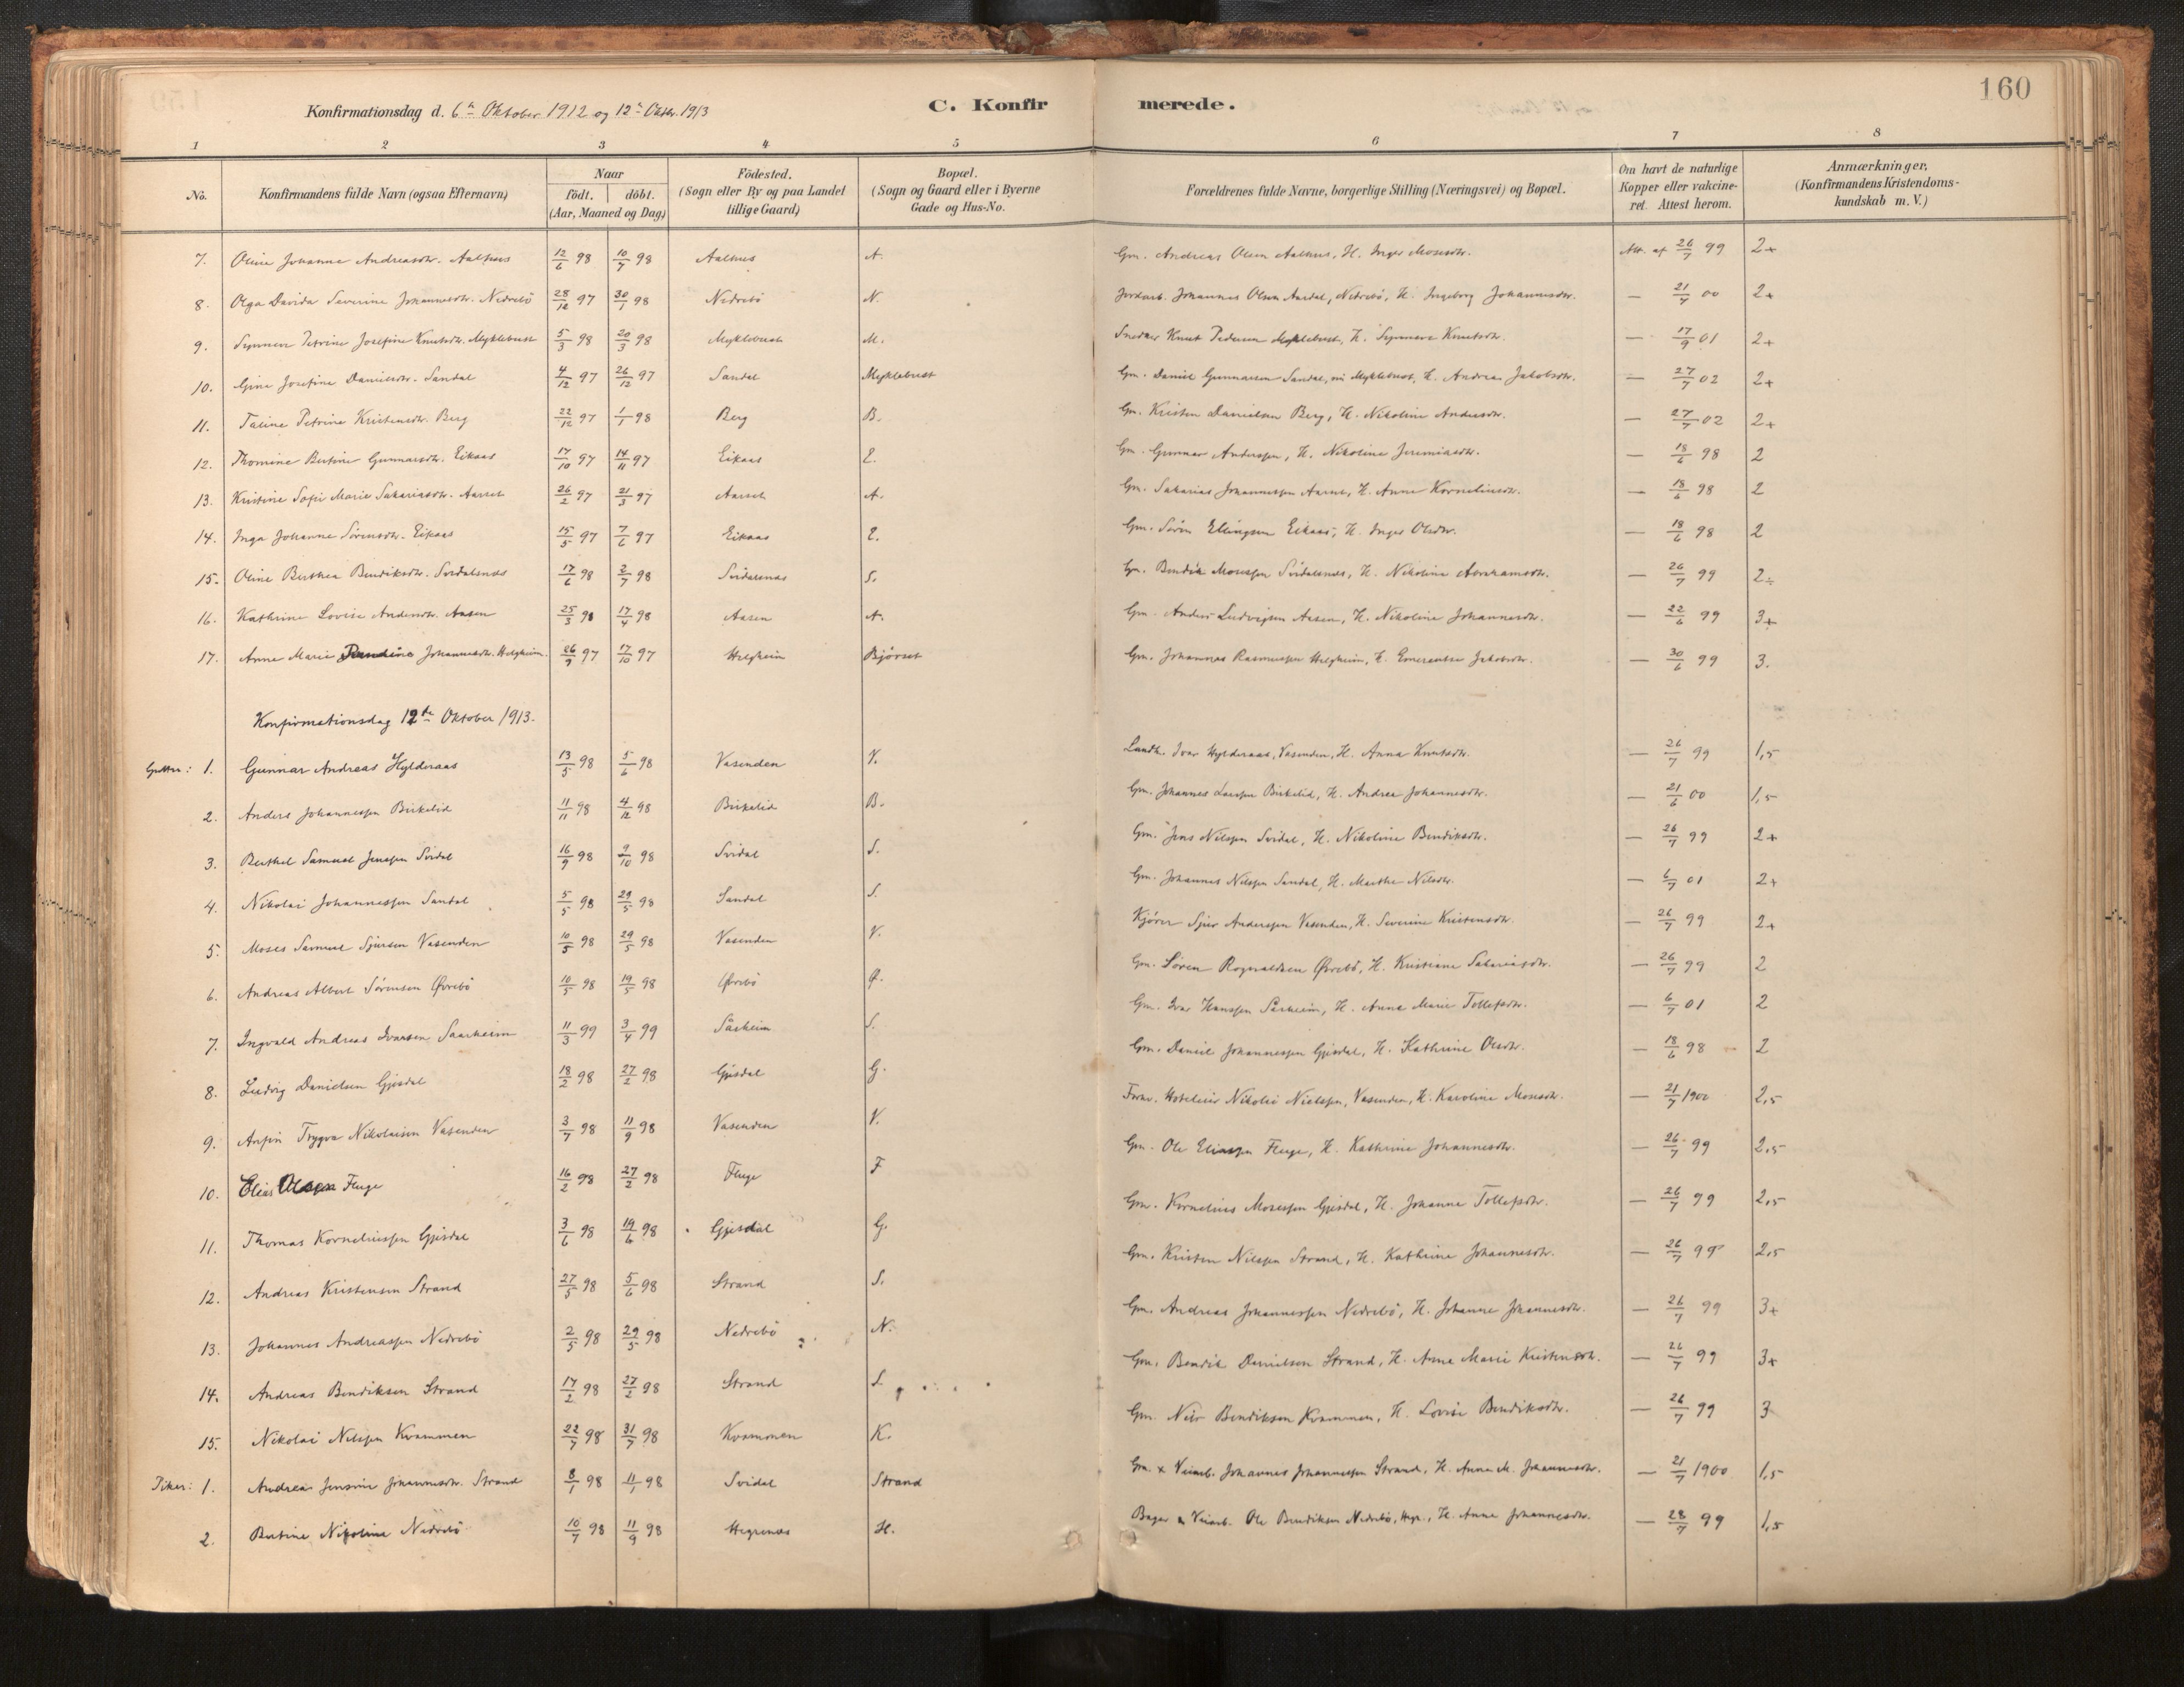 160
Konfirmationsdag d. 6te Oktober 1912 og 12te Oktbr. 1913 C. Konfirmerede.
1 2 3 4 5 6 7 8
No. Konfirmandens fulde Navn (ogsaa Efternavn) Naar født. døbt. (Aar, Maaned og Dag) Födested. (Sogn eller By og paa Landet tillige Gaard) Bopæl. (Sogn og Gaard eller i Byerne Gade og Hus-No. Forældrenes fulde Navne, borgerlige Stilling (Næringsvei) og Bopæl. Om havt de naturlige Kopper eller vakcineret. Attest herom. Anmærkninger, (Konfirmandens Kristendomskundskab m. V.)
7. Oline Johanne Andreasdtr. Aalhus 12/6 98 10/7 98 Aalhus A. Gm. Andreas Olsen Aalhus, H. Inger Mosesdtr. Att. af 26/7 99 2+
8. Olga Davida Severine Johannesdtr. Nedrebö 28/12 97 30/1 98 Nedrebö N. Jordarb. Johannes Olsen Aardal, Nedrebö, H. Ingeborg Johannesdtr. — 21/7 00 2+
9. Synneve Petrine Josefine Knutsdtr. Myklebust 5/3 98 20/3 98 Myklebust M. Snedker Knut Pedersen Myklebust, H. Synneve Knutsdtr. — 17/9 01 2+
10. Gine Josefine Danielsdtr. Sandal 4/12 97 26/12 97 Sandal Myklebust Gm. Daniel Gunnarsen Sandal, nu Myklebust, H. Andrea Jakobsdtr. — 27/7 02 2+
11. Taline Petrine Kristensdtr. Berg 22/12 97 1/1 98 Berg B. Gm. Kristen Danielsen Berg, H. Nikoline Andersdtr. — 27/7 02 2+
12. Thomine Bertine Gunnarsdtr. Eikaas 17/10 97 14/11 97 Eikaas E. Gm. Gunnar Anderssen, H. Nikoline Jeremiasdtr. — 18/6 98 2
13. Kristine Sofie Marie Sakariasdtr. Aarset 26/2 97 21/3 97 Aarset A. Gm. Sakarias Johannessen Aarset, H. Anne Korneliusdtr. — 18/6 98 2
14. Inga Johanne Sörensdtr. Eikaas 15/5 97 7/6 97 Eikaas E. Gm. Sören Ellingsen Eikaas, H. Inger Olsdtr. — 18/6 98 2
15. Oline Berthea Bendiksdtr. Svidalsnes 17/6 98 3/7 98 Svidalsnes S. Gm. Bendik Mosessen Svidalsnes, H. Nikoline Abrahamsdtr. — 26/7 99 2÷
16. Kathrine Lovise Andersdtr. Aasen 25/3 98 17/4 98 Aasen A. Gm. Anders Ludvigsen Aasen, H. Nikoline Johannesdtr. — 22/6 99 3+
17. Anne Marie Johannesdtr. Helgheim 26/9 97 17/10 97 Helgheim Bjørset Gm. Johannes Rasmussen Helgheim, H. Emerentse Jakobsdtr. — 30/6 99 3.
Konfirmationsdag 12te Oktober 1913.
Gutter: 1. Gunnar Andreas Hylderaas 13/5 98 5/6 98 Vasenden V. Landh. Ivar Hylderaas, Vasenden, H. Anna Knutsdtr. — 26/7 99 1,5
2. Anders Johannessen Birkelid 11/11 98 4/12 98 Birkelid B. Gm. Johannes Larssen Birkelid, H. Andrea Johannesdtr. — 21/6 00 1,5
3. Berthel Samuel Jenssen Svidal 16/9 98 9/10 98 Svidal S. Gm. Jens Nilssen Svidal, H. Nikoline Bendiksdtr. — 26/7 99 2+
4. Nikolai Johannessen Sandal 5/5 98 29/5 98 Sandal S. Gm. Johannes Nilssen Sandal, H. Marthe Nilsdtr. — 6/7 01 2+
5. Moses Samuel Sjursen Vasenden 10/5 98 29/5 98 Vasenden V. Kjörer Sjur Anderssen Vasenden, H. Severine Kristensdtr. — 26/7 99 2+
6. Andreas Albert Sörensen Øvrebö 10/5 98 19/5 98 Øvrebö Ø. Gm. Sören Rognaldsen Øvrebö, H. Kristiane Sakariasdtr. — 26/7 99 2
7. Ingvald Andreas Ivarsen Saarheim 11/3 99 3/4 99 Sårheim S. Gm. Ivar Hanssen Sårheim, H. Anne Marie Tollefsdtr. — 6/7 01 2
8. Ludvig Danielsen Gjesdal 18/2 98 27/2 98 Gjesdal G. Gm. Daniel Johannessen Gjesdal, H. Kathrine Olsdtr. — 18/6 98 2
9. Arfin Trygve Nikolaisen Vasenden 3/7 98 11/9 98 Vasenden V. Forhv. Hotelleier Nikolai Nielssen, Vasenden, H. Karoline Mosesdtr. — 21/7 1900 2,5
10. Elias Olsen Fluge 16/2 98 27/2 98 Fluge F Gm. Ole Eliassen Fluge, H. Kathrine Johannesdtr. — 26/7 99 2,5
11. Thomas Korneliussen Gjesdal 3/6 98 19/6 98 Gjesdal G. Gm. Kornelius Mosessen Gjesdal, H. Johanne Tollefsdtr. — 26/7 99 2,5
12. Andreas Kristensen Strand 27/5 98 5/6 98 Strand S. Gm. Kristen Nilssen Strand, H. Kathrine Johannesdtr. — 26/7 99 2,5
13. Johannes Andreassen Nedrebö 2/5 98 29/5 98 Nedrebö N. Gm. Andreas Johannessen Nedrebö, H. Johanne Johannesdtr. — 26/7 99 3+
14. Andreas Bendiksen Strand 17/2 98 27/2 98 Strand S Gm. Bendik Danielsen Strand, H. Anne Marie Kristensdtr. — 26/7 99 3+
15. Nikolai Nilssen Kvammen 22/7 98 31/7 98 Kvammen K. Gm. Nils Bendiksen Kvammen, H. Lovise Bendiksdtr. — 26/7 99 3
Piker: 1. Andrea Jensine Johannesdtr. Strand 8/1 98 11/1 98 Svidal Strand Gm. & Veiarb. Johannes Johannessen Strand, H. Anne M. Johannesdtr. — 21/7 1900 1,5
2. Bertine Nikoline Nedrebö 10/7 98 11/9 98 Hegrenes H. Bager & Veiarb. Ole Bendiksen Nedrebö, Hegr., H. Anne Johannesdtr. — 28/7 99 1,5